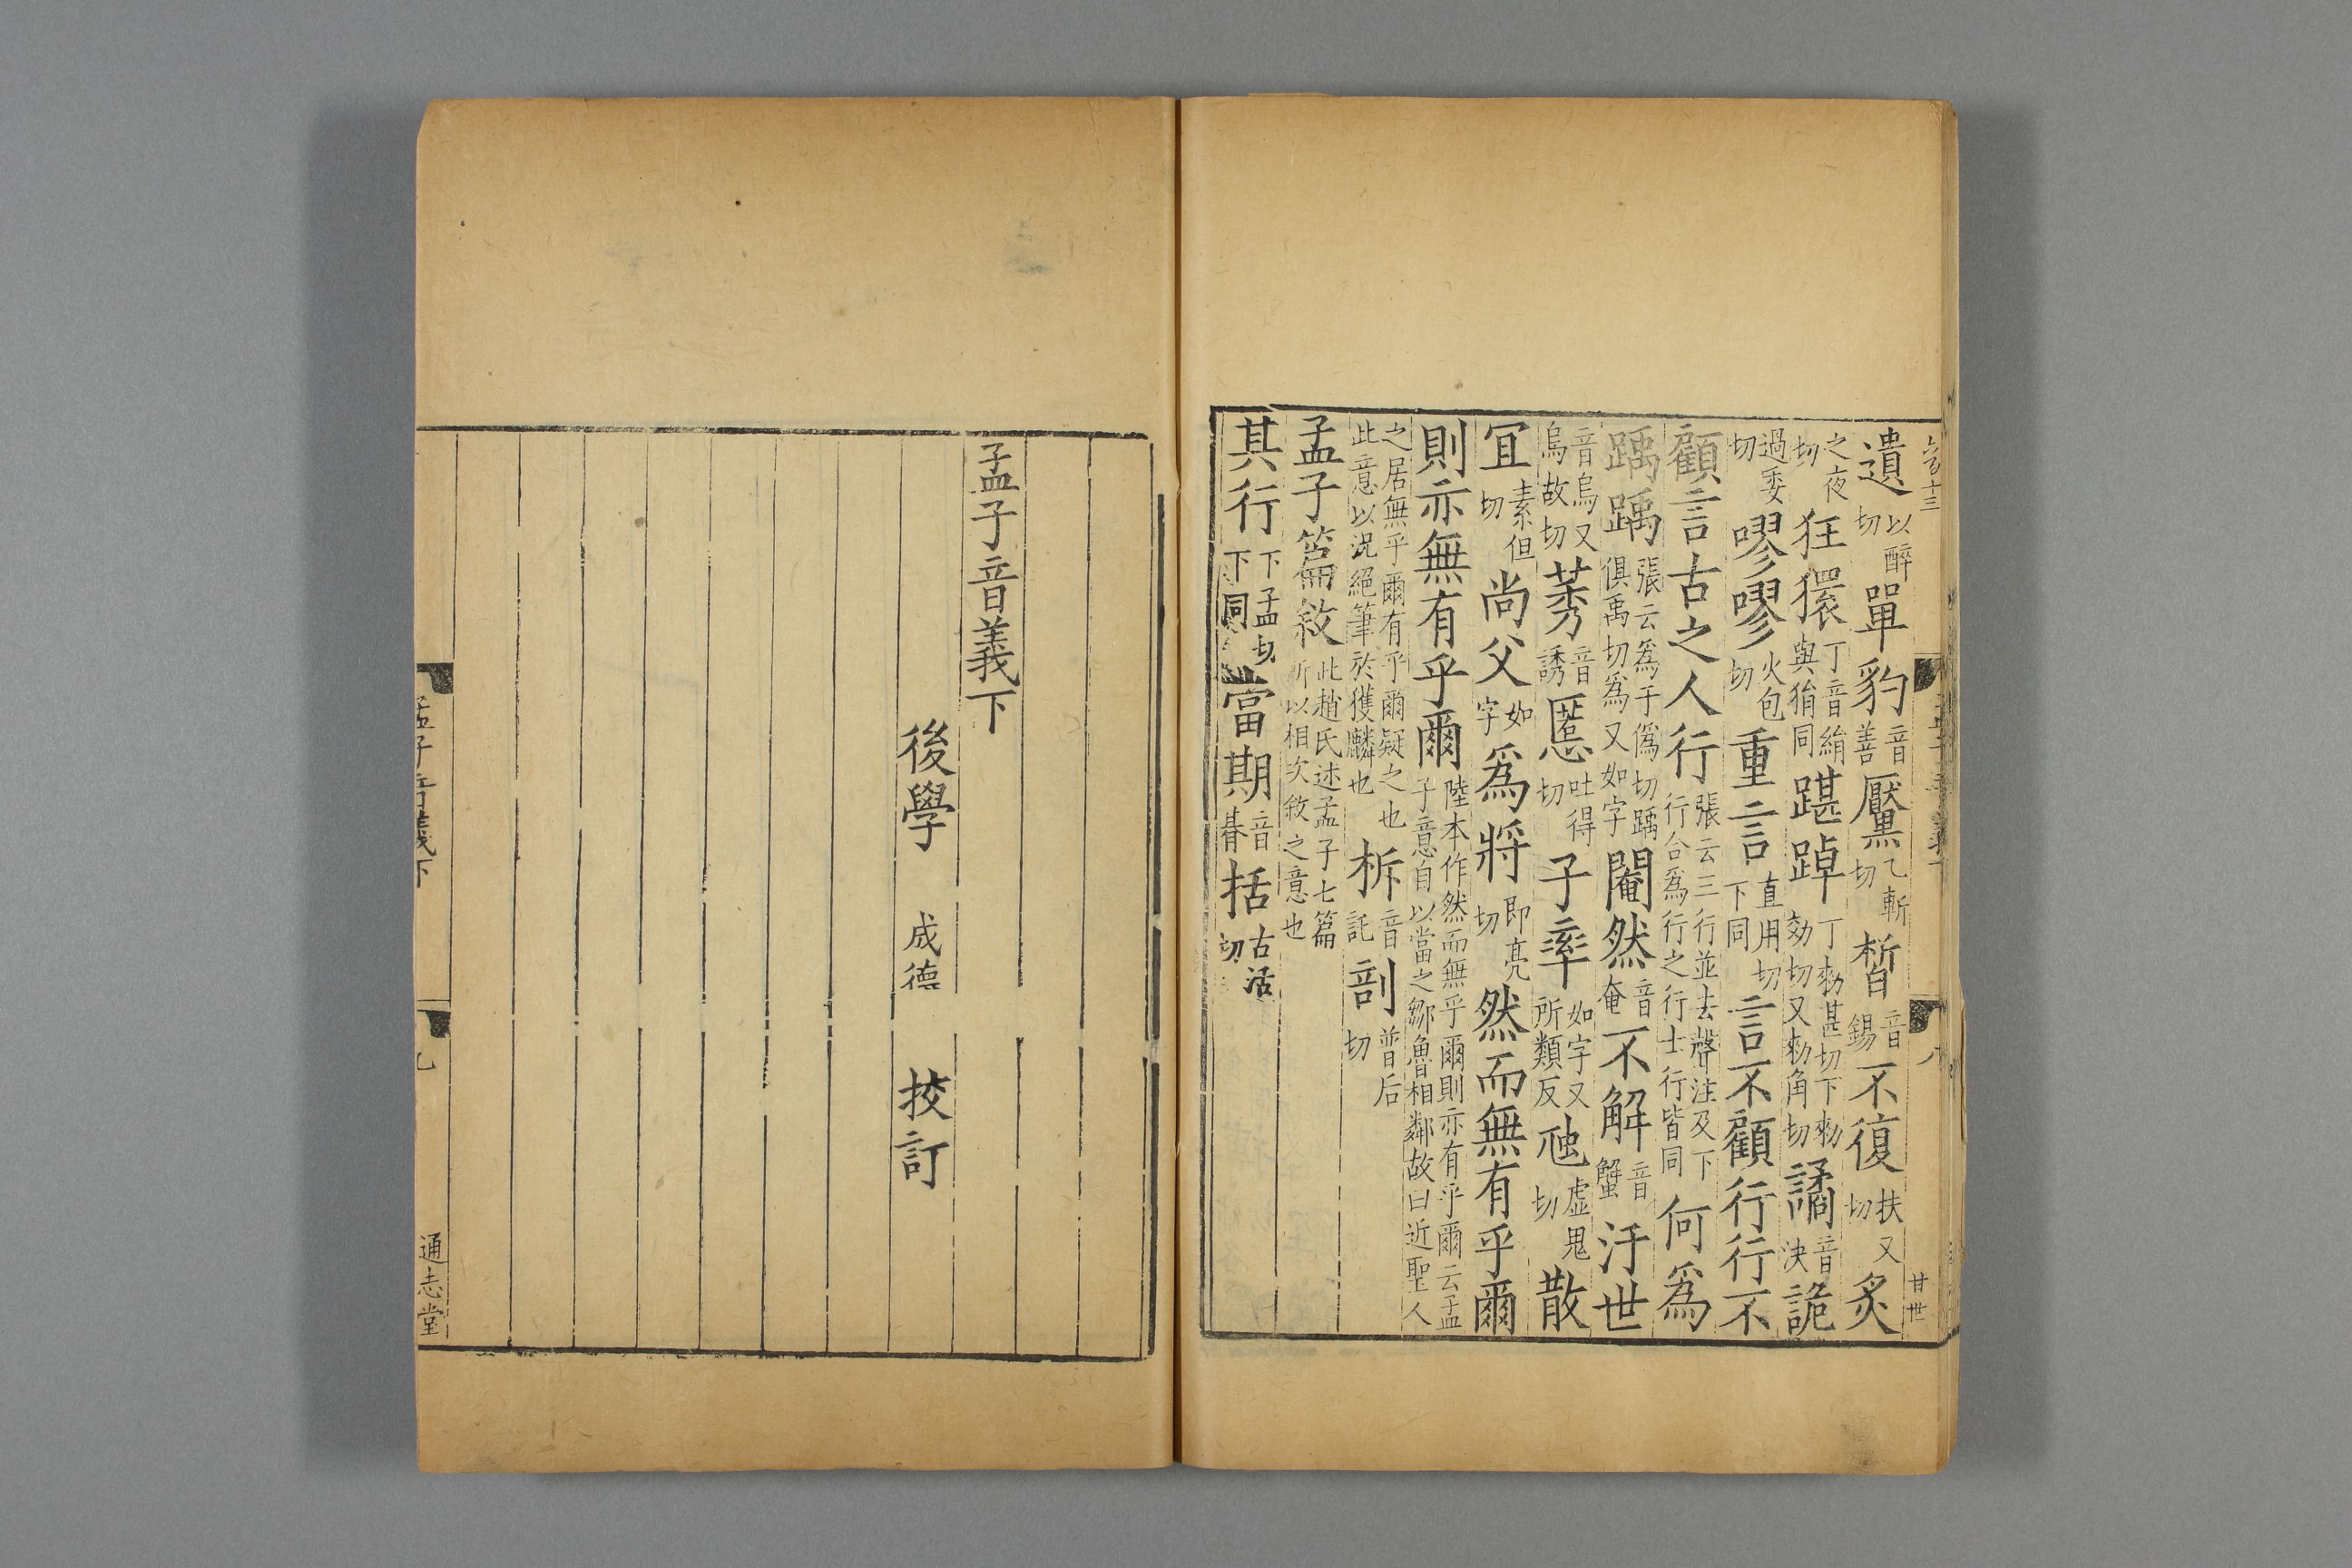 遺以醉切單豹音善黶乙斬切皙音錫不復扶又切炙
之夜切狂獧丁音絹與狷同踸踔丁勑甚切下勑効切又勑角切譎音決詭
過委切嘐嘐火包切重言直用切下同言不顧行行不
顧言古之人行張云三行並去聲注及下行合爲行之行士行皆同何爲
踽踽張云爲于僞切踽俱禹切爲又如字閹然音奄不解音蟹汙世
音烏又烏故切莠音誘慝吐得切子率如字又所類反虺虛鬼切散
冝素但切尚父如字爲將即亮切然而無有乎爾
則亦無有乎爾陸本作然而無乎爾則亦有乎爾云孟子意自以當之鄒魯相鄰故曰近聖人
之居無乎爾有乎爾疑之也此意以況絕筆於獲麟也柝音託剖普后切
孟子篇敘此趙氏述孟子七篇所以相次敘之意也
其行下孟切下同當期音朞括古活切
孟子音義下
後學 成德 挍訂
孟子音義下
九
通志堂